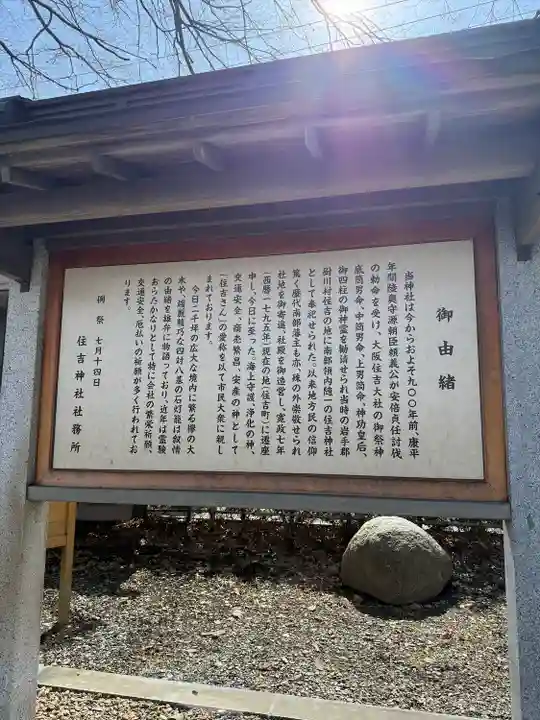 御由緒
当神社は今からおよそ九〇〇年前、康平
年間陸奥守源朝臣頼義公が安倍貞任討伐
の勅命を受け、大阪住吉大社の御祭神
底筒男命、中筒男命、上男筒命、神功皇后、
御四柱の御神霊を勧請せられ当時の岩手郡
厨川村住吉の地に南部領内随一の住吉神社
として奉祀せられた。以来地方民の信仰
篤く歴代南部藩主も亦、殊の外崇敬せられ
社地を御寄進、社殿を御造営し、寛政七年
(西暦一七九五年)現在の地(住吉町)に遷座
申し、今日に至った。海上守護、浄化の神、
交通安全、商老繁昌、安産の神として
「住吉さん」の愛称を以て市民大衆に親し
まれております。
今日二千坪の広大な境内に繁る欅の大
木や、綺麗精巧な四対八基の石灯籠は叙情
の由緒を雄弁に物語っており、近年は霊験
おらたかなりとして特に会社の繁栄祈願、
交通安全、厄払いの祈願が多く行われてお
ります。
例祭 七月十四日
住吉神社社務所